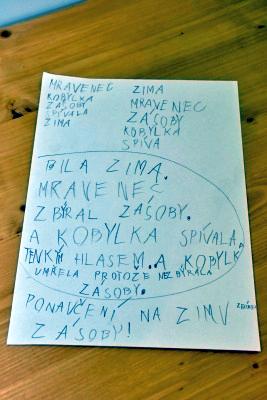 MRAVENEC
KOBYLKA
ZÁSOBY
SPÍVALA
ZIMA
ZIMA
MRAVENEC
ZÁSOBY
KOBYLKA
SPÍVA
BILA ZIMA.
MRAVENEC
ZBÍRAL ZÁSOBY.
A KOBYLKA SPÍVALA
TENKÝM HLASEM. A KOBYLKA
UMŘELA PROTOŽE NEZBÝRALA
ZÁSOBY.
PONAUČENÍ NA ZIMU
ZÁSOBY!